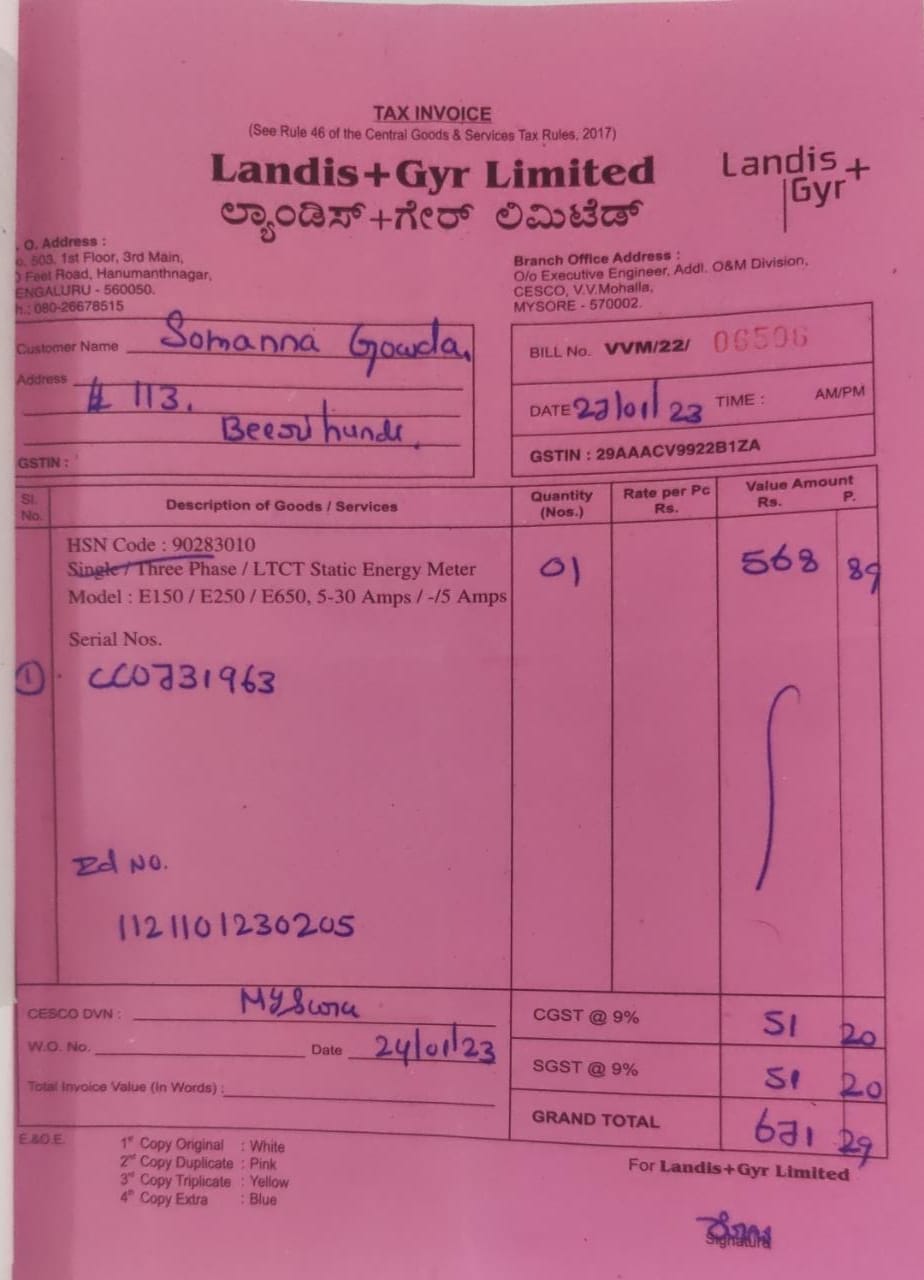 TAX INVOICE
(See Rule 46 of the Central Goods & Services Tax Rules, 2017)
Landis+Gyr Limited
Landis+
Gyr
ಲ್ಯಾಂಡಿಸ್+ಗೇರ್ ಲಿಮಿಟೆಡ್
. O. Address :
o. 503, 1st Floor, 3rd Main,
Feet Road, Hanumanthnagar,
ENGALURU - 560050.
h.: 080-26678515
Branch Office Address :
O/o Executive Engineer, Addl. O&M Division,
CESCO, V.V.Mohalla,
MYSORE - 570002.
Customer Name Somanna Gowda,
Address
# 113,
GSTIN :
BILL No. VVM/22/ 06506
DATE 27/01/23 TIME : AM/PM
GSTIN : 29AAACV9922B1ZA
Sl. No. Description of Goods / Services Quantity (Nos.) Rate per Pc Rs. Value Amount Rs. P.
HSN Code : 90283010
Single / Three Phase / LTCT Static Energy Meter 01 568 89
Model : E150 / E250 / E650, 5-30 Amps / -/5 Amps
Serial Nos.
1 CC0731963
Id No.
1121101230205
CESCO DVN :
W.O. No. Date 24/01/23
Total Invoice Value (In Words) :
CGST @ 9% 51 20
SGST @ 9% 51 20
GRAND TOTAL 671 29
E.&O.E.
1st Copy Original : White
2nd Copy Duplicate : Pink
3rd Copy Triplicate : Yellow
4th Copy Extra : Blue
For Landis+Gyr Limited
Signature